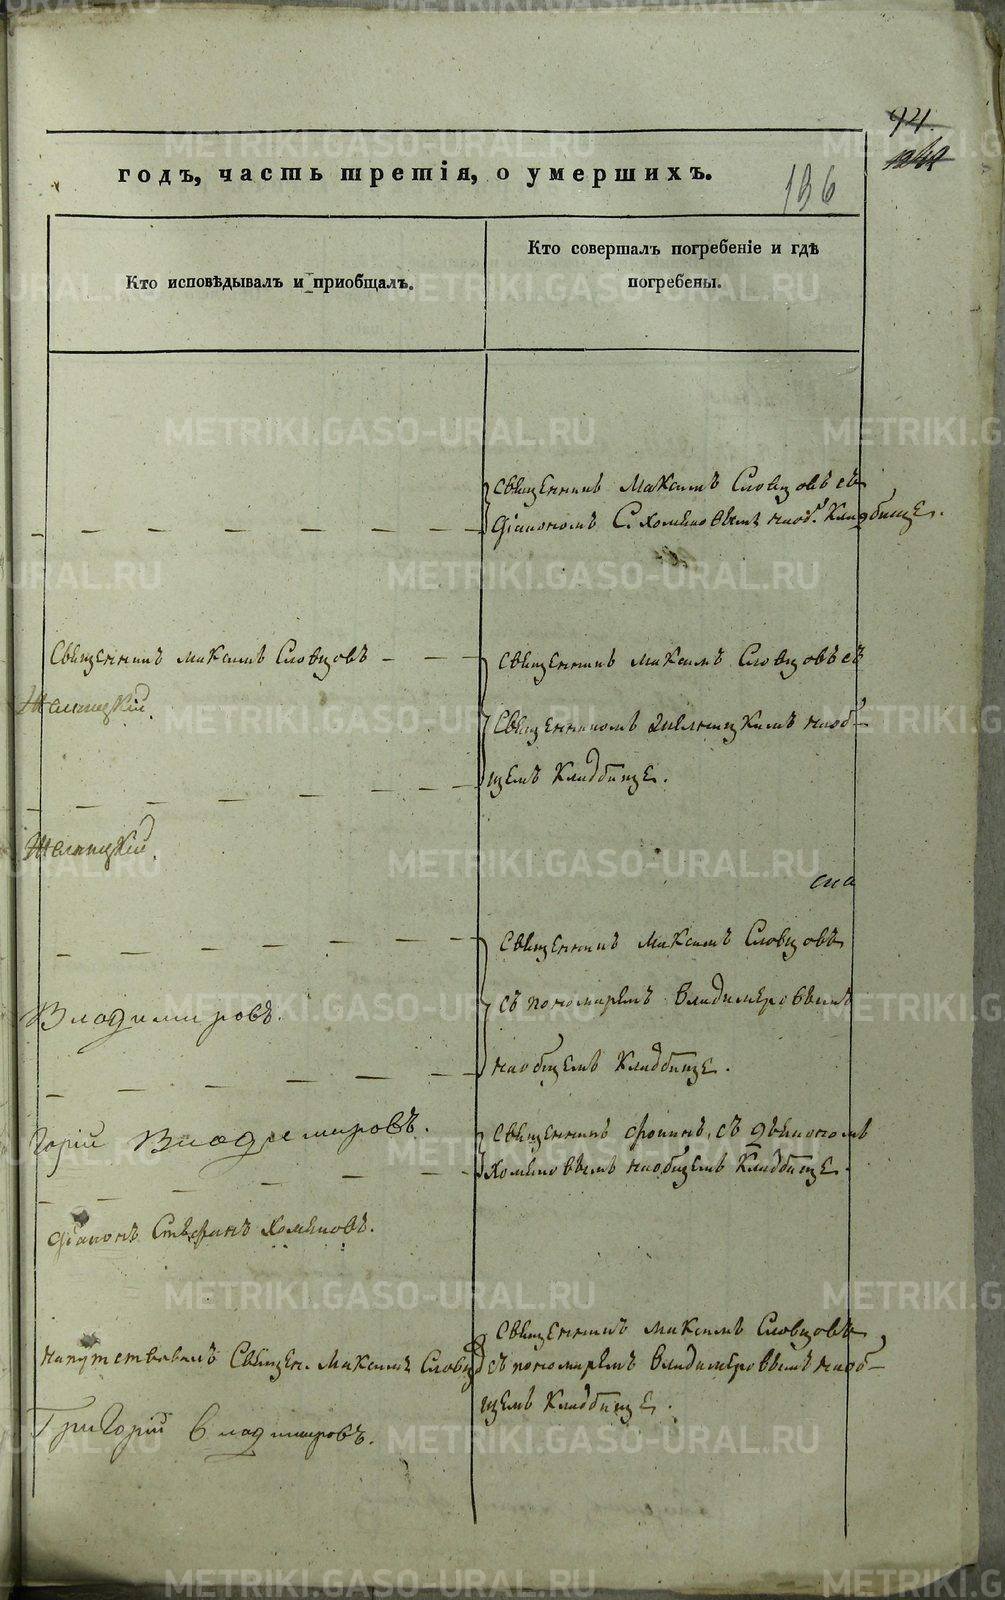 94.
годъ, часть третія, о умершихъ.
136
Кто исповѣдывалъ и приобщалъ.
Кто совершалъ погребеніе и гдѣ
погребены.
Священникъ Максимъ Словцовъ съ
Діакономъ С. Хомяковымъ на об. Кладбище.
Священникъ Максимъ Словцовъ
Священникъ Максимъ Словцовъ съ
Священникомъ на об-
щемъ Кладбище.
Священникъ Максимъ Словцовъ
съ пономаремъ Владимеровымъ
Владимировъ.
на общемъ Кладбище.
горій Владимировъ.
Священникъ съ діакономъ
Хомяковымъ на общемъ Кладбище.
Діаконъ Стефанъ Хомяковъ.
Священникъ Максимъ Словцовъ
напутствовалъ Священ. Максимъ Словцо
съ пономаремъ Владимеровымъ на об-
щемъ Кладбище.
Григорій Владимировъ.
METRIKI.GASO-URAL.RU